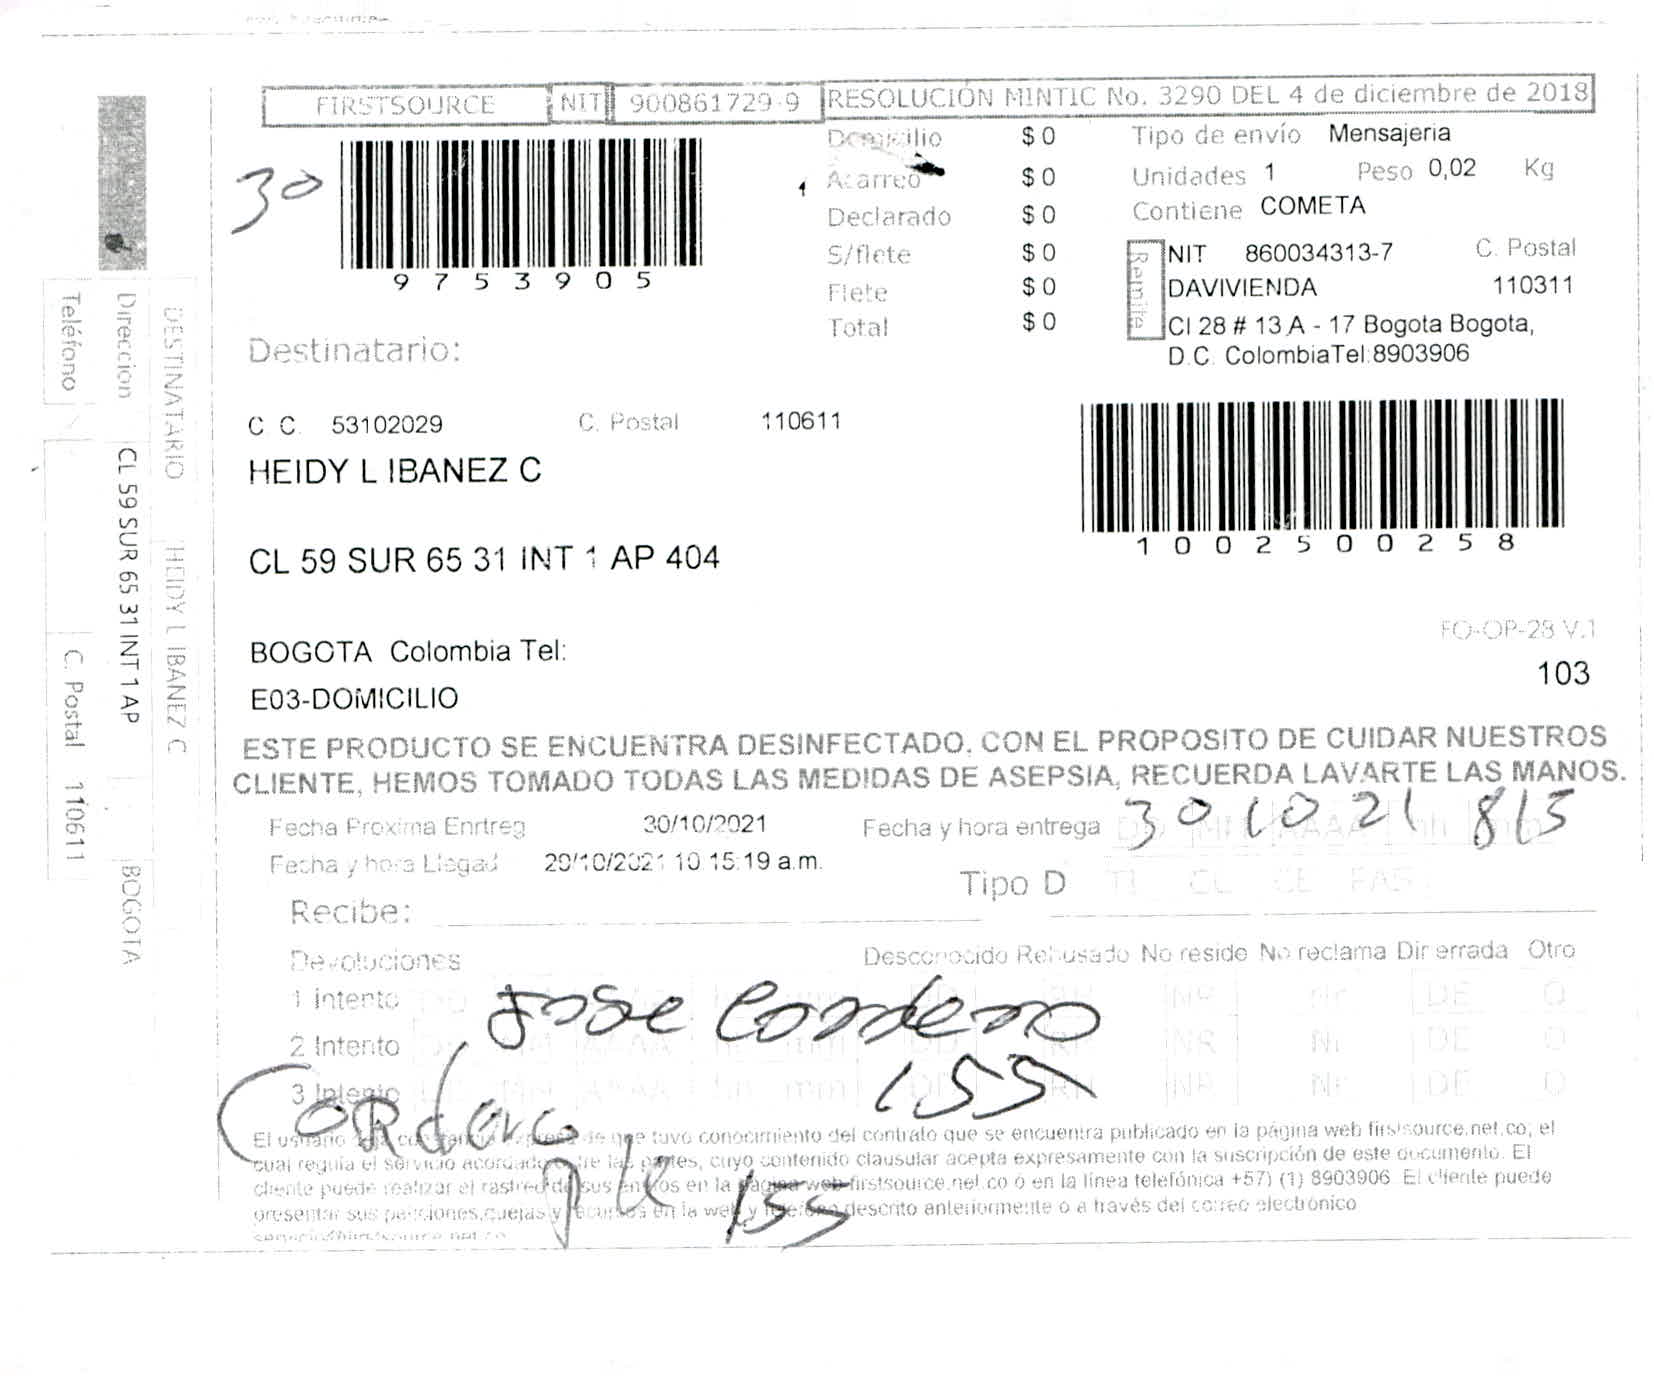 FIRSTSOURCE NIT 900861729-9 RESOLUCIÓN MINTIC No. 3290 DEL 4 de diciembre de 2018
30
9753905
Domicilio $ 0
Acarreo $ 0
Declarado $ 0
S/flete $ 0
Flete $ 0
Total $ 0
Tipo de envío Mensajeria
Unidades 1 Peso 0,02 Kg
Contiene COMETA
Remite
NIT 860034313-7 C. Postal
DAVIVIENDA 110311
Cl 28 # 13 A - 17 Bogota Bogota,
D.C. ColombiaTel:8903906
1002500258
Destinatario:
C C 53102029 C. Postal 110611
HEIDY L IBANEZ C
CL 59 SUR 65 31 INT 1 AP 404
BOGOTA Colombia Tel:
E03-DOMICILIO
FO-OP-28 V.1
103
ESTE PRODUCTO SE ENCUENTRA DESINFECTADO. CON EL PROPOSITO DE CUIDAR NUESTROS
CLIENTE, HEMOS TOMADO TODAS LAS MEDIDAS DE ASEPSIA, RECUERDA LAVARTE LAS MANOS.
Fecha Proxima Enrtreg 30/10/2021 Fecha y hora entrega 30 10 21 815
Fecha y hora Llegad 29/10/2021 10 15:19 a.m.
Tipo D TI CL CE PAS
Recibe:
Devoluciones Desconocido Rehusado No reside No reclama Dir errada Otro
1 Intento DD MM AAAA hh mm DD RH NR Nr DE O
2 Intento DD MM AAAA hh mm DD RH NR Nr DE O
3 Intento DD MM AAAA hh mm DD RH NR Nr DE O
Jose Cordero
155
Cordero
155
El usuario deja constancia expresa de que tuvo conocimiento del contrato que se encuentra publicado en la página web firstsource.net.co; el
cual regula el servicio acordado entre las partes, cuyo contenido clausular acepta expresamente con la suscripción de este documento. El
cliente puede realizar el rastreo de sus envíos en la página web firstsource.net.co o en la línea telefónica +57) (1) 8903906 El cliente puede
presentar sus peticiones,quejas y recursos en la web y descrito anteriormente o a través del correo electrónico
DESTINATARIO HEIDY L IBANEZ C
Direccion CL 59 SUR 65 31 INT 1 AP BOGOTA
Teléfono C. Postal 110611